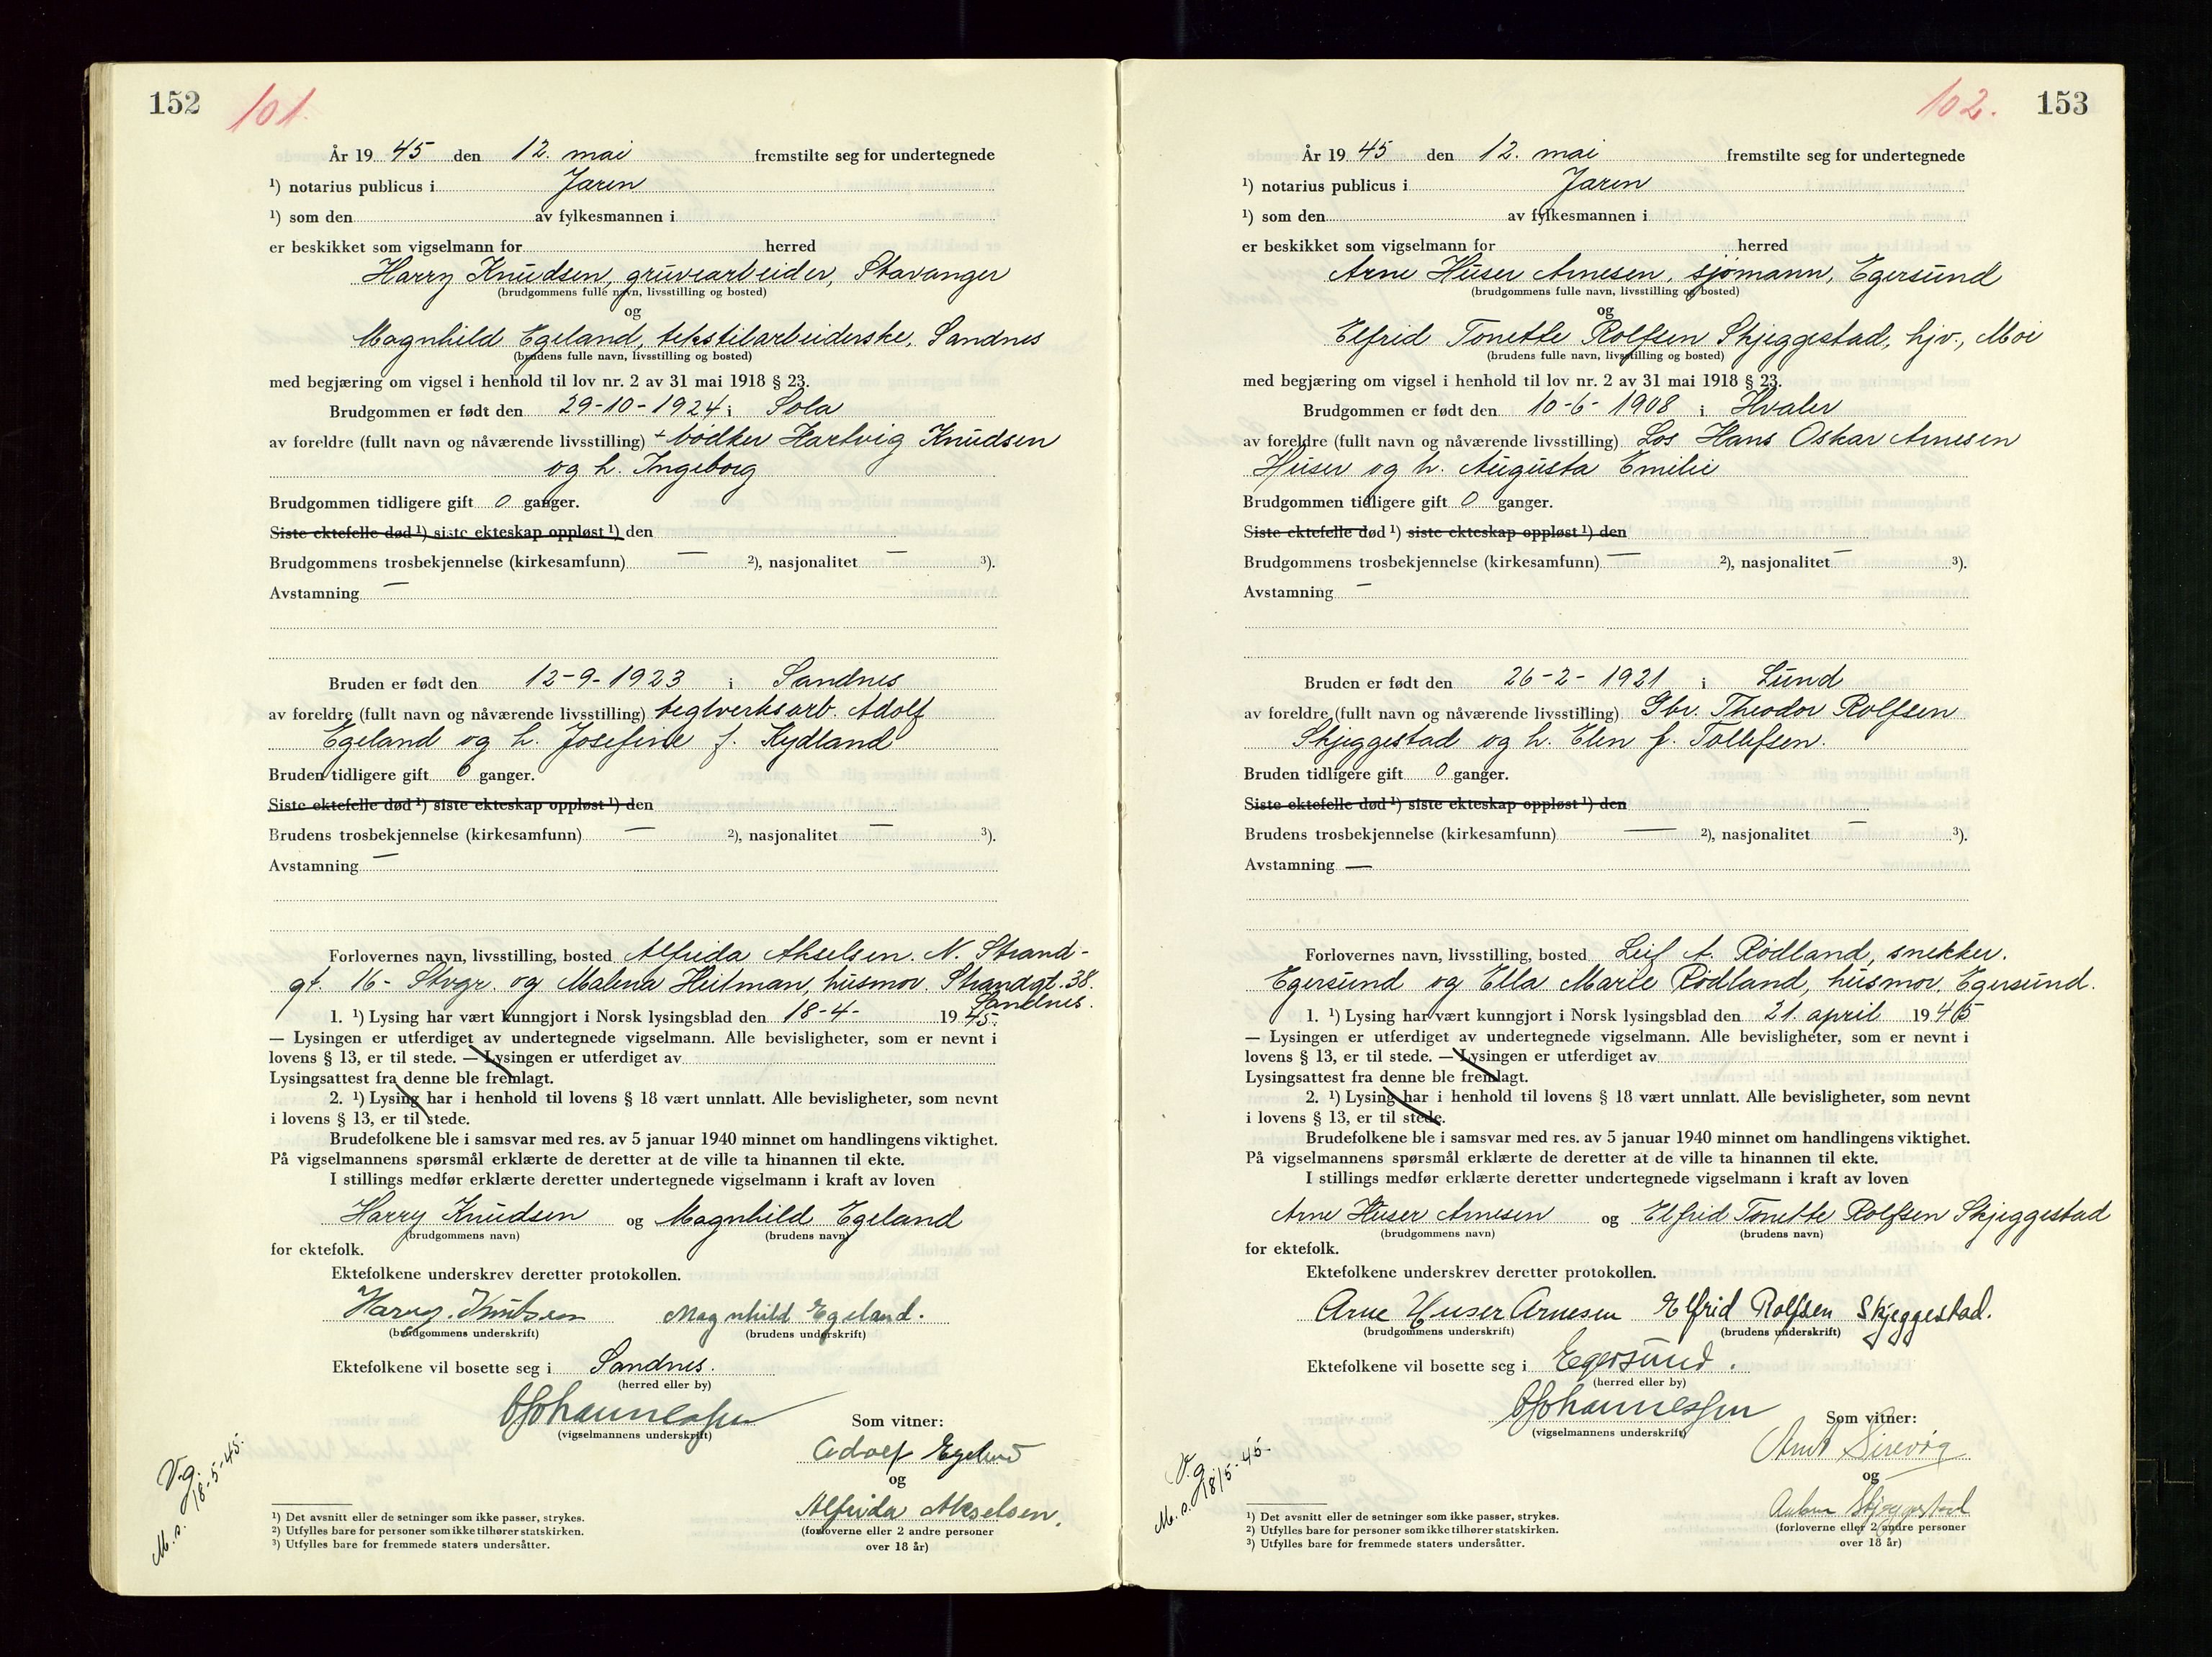 152 101.
År 19 45 den 12. mai fremstilte seg for undertegnede
¹) notarius publicus i Jæren
¹) som den av fylkesmannen i
er beskikket som vigselmann for herred
Harry Knudsen, gruvearbeider, Stavanger
(brudgommens fulle navn, livsstilling og bosted)
og
Magnhild Egeland, tekstilarbeiderske, Sandnes
(brudens fulle navn, livsstilling og bosted)
med begjæring om vigsel i henhold til lov nr. 2 av 31 mai 1918 § 23.
Brudgommen er født den 29-10-1924 i Sola
av foreldre (fullt navn og nåværende livsstilling) + bødker Hartvig Knudsen
og h. Ingeborg
Brudgommen tidligere gift 0 ganger.
Siste ektefelle død ¹) siste ekteskap oppløst ¹) den
Brudgommens trosbekjennelse (kirkesamfunn) — ²), nasjonalitet — ³).
Avstamning —
Bruden er født den 12-9-1923 i Sandnes
av foreldre (fullt navn og nåværende livsstilling) teglverksarb. Adolf
Egeland og h. Josefine f. Kydland
Bruden tidligere gift 0 ganger.
Siste ektefelle død ¹) siste ekteskap oppløst ¹) den
Brudens trosbekjennelse (kirkesamfunn) — ²), nasjonalitet — ³).
Avstamning —
Forlovernes navn, livsstilling, bosted Alfrida Akselsen. N. Strand-
gt. 16- Stvgr. og Malena Heitman, husmor. Strandgt. 38.
Sandnes.
1. ¹) Lysing har vært kunngjort i Norsk lysingsblad den 18-4- 19 45.
— Lysingen er utferdiget av undertegnede vigselmann. Alle bevisligheter, som er nevnt i
lovens § 13, er til stede. — Lysingen er utferdiget av
Lysingsattest fra denne ble fremlagt.
2. ¹) Lysing har i henhold til lovens § 18 vært unnlatt. Alle bevisligheter, som nevnt
i lovens § 13, er til stede.
Brudefolkene ble i samsvar med res. av 5 januar 1940 minnet om handlingens viktighet.
På vigselmannens spørsmål erklærte de deretter at de ville ta hinannen til ekte.
I stillings medfør erklærte deretter undertegnede vigselmann i kraft av loven
Harry Knudsen og Magnhild Egeland
(brudgommens navn) (brudens navn)
for ektefolk.
Ektefolkene underskrev deretter protokollen.
Harry. Knudsen Magnhild Egeland.
(brudgommens underskrift) (brudens underskrift)
Ektefolkene vil bosette seg i Sandnes.
(herred eller by)
Johannessen
(vigselmannens underskrift)
Som vitner:
Adolf Egeland
og
Alfrida Akselsen.
(forloverne eller 2 andre personer
over 18 år)
V.g.
M.s. 18-5-45.
¹) Det avsnitt eller de setninger som ikke passer, strykes.
²) Utfylles bare for personer som ikke tilhører statskirken.
³) Utfylles bare for fremmede staters undersåtter.
102. 153
År 19 45 den 12. mai fremstilte seg for undertegnede
¹) notarius publicus i Jæren
¹) som den av fylkesmannen i
er beskikket som vigselmann for herred
Arne Huser Arnesen, sjømann, Egersund
(brudgommens fulle navn, livsstilling og bosted)
og
Elfrid Tonette Rolfsen Skjeggestad, hjv., Moi
(brudens fulle navn, livsstilling og bosted)
med begjæring om vigsel i henhold til lov nr. 2 av 31 mai 1918 § 23.
Brudgommen er født den 10-6-1908 i Hvaler
av foreldre (fullt navn og nåværende livsstilling) Los Hans Oskar Arnesen
Huser og h. Augusta Emilie
Brudgommen tidligere gift 0 ganger.
Siste ektefelle død ¹) siste ekteskap oppløst ¹) den
Brudgommens trosbekjennelse (kirkesamfunn) — ²), nasjonalitet — ³).
Avstamning —
Bruden er født den 26-2-1921 i Lund
av foreldre (fullt navn og nåværende livsstilling) Gbr. Theodor Rolfsen
Skjeggestad og h. Elen f. Tollefsen.
Bruden tidligere gift 0 ganger.
Siste ektefelle død ¹) siste ekteskap oppløst ¹) den
Brudens trosbekjennelse (kirkesamfunn) — ²), nasjonalitet — ³).
Avstamning —
Forlovernes navn, livsstilling, bosted Leif A. Rødland, snekker.
Egersund og Ella Marie Rødland, husmor, Egersund.
1. ¹) Lysing har vært kunngjort i Norsk lysingsblad den 21. april 19 45
— Lysingen er utferdiget av undertegnede vigselmann. Alle bevisligheter, som er nevnt i
lovens § 13, er til stede. — Lysingen er utferdiget av
Lysingsattest fra denne ble fremlagt.
2. ¹) Lysing har i henhold til lovens § 18 vært unnlatt. Alle bevisligheter, som nevnt
i lovens § 13, er til stede.
Brudefolkene ble i samsvar med res. av 5 januar 1940 minnet om handlingens viktighet.
På vigselmannens spørsmål erklærte de deretter at de ville ta hinannen til ekte.
I stillings medfør erklærte deretter undertegnede vigselmann i kraft av loven
Arne Huser Arnesen og Elfrid Tonette Rolfsen Skjeggestad
(brudgommens navn) (brudens navn)
for ektefolk.
Ektefolkene underskrev deretter protokollen.
Arne Huser Arnesen Elfrid Rolfsen Skjeggestad.
(brudgommens underskrift) (brudens underskrift)
Ektefolkene vil bosette seg i Egersund.
(herred eller by)
Johannessen
(vigselmannens underskrift)
Som vitner:
Arnt Sirevåg
og
Skjeggestad
(forloverne eller 2 andre personer
over 18 år)
V.g.
M.s. 18/5-45
¹) Det avsnitt eller de setninger som ikke passer, strykes.
²) Utfylles bare for personer som ikke tilhører statskirken.
³) Utfylles bare for fremmede staters undersåtter.